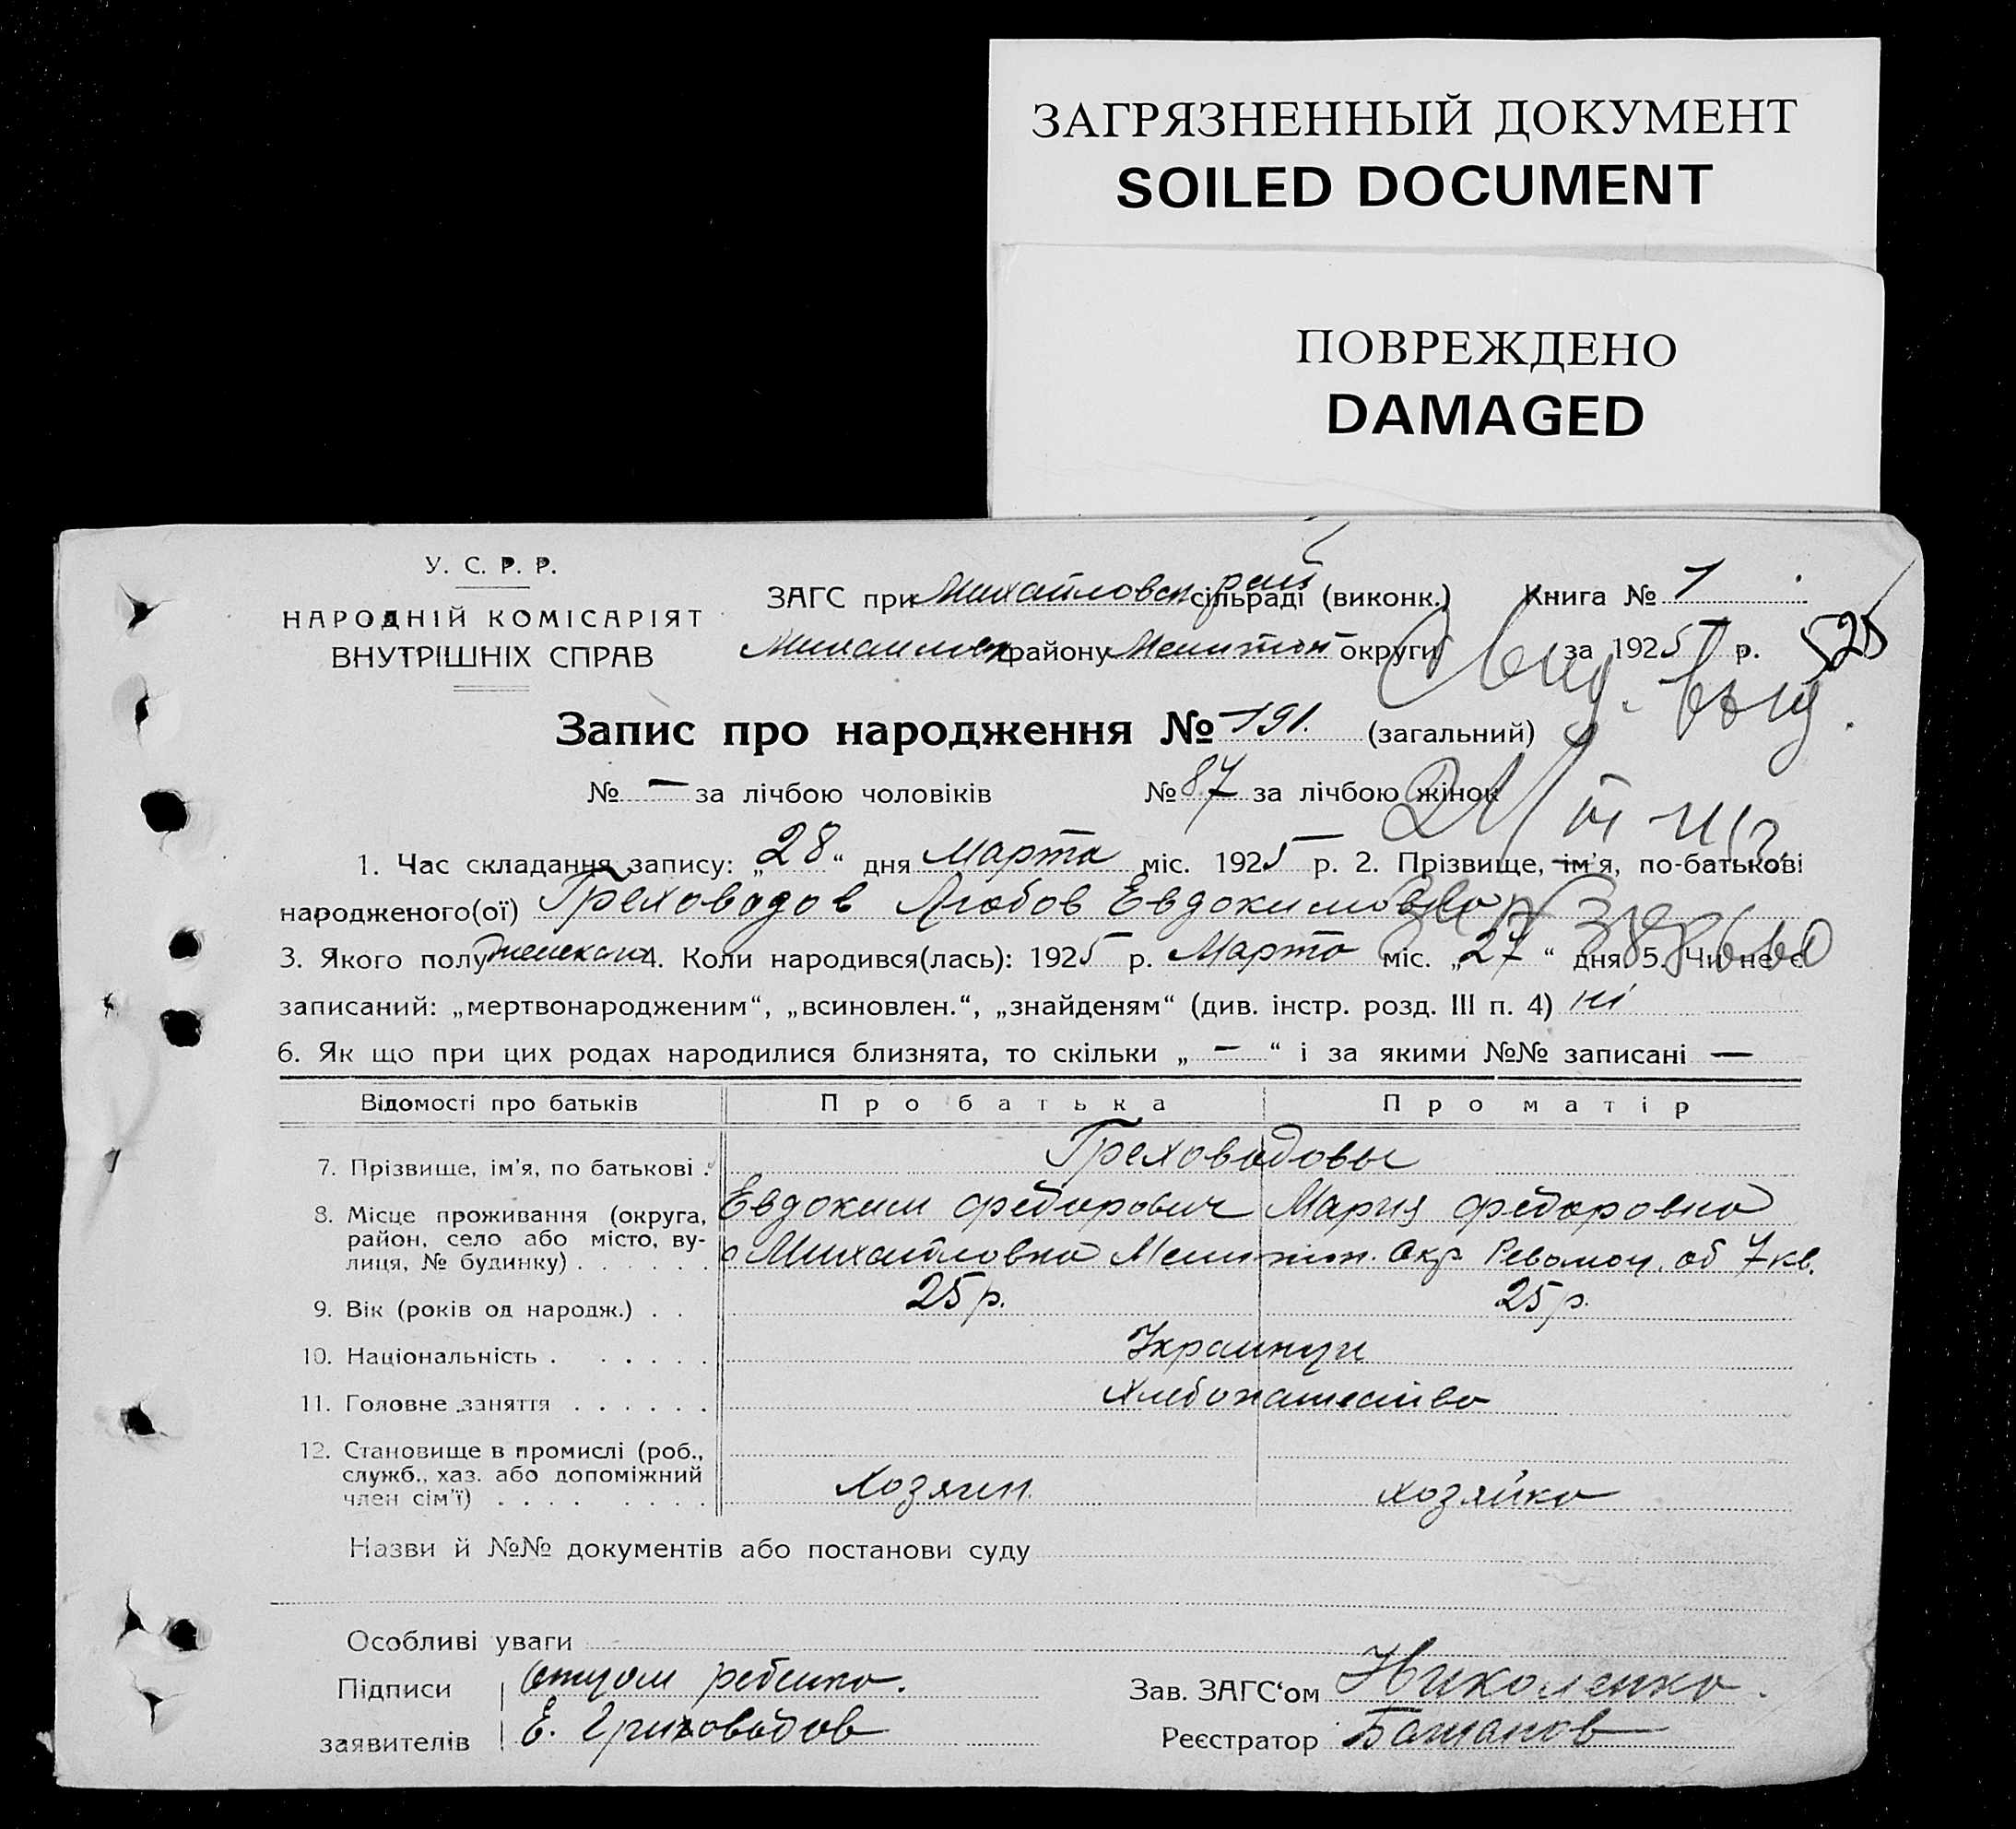 ЗАГРЯЗНЕННЫЙ ДОКУМЕНТ
SOILED DOCUMENT
ПОВРЕЖДЕНО
DAMAGED
У. С. Р. Р.
НАРОДНІЙ КОМІСАРІЯТ
ВНУТРІШНІХ СПРАВ
ЗАГС при Михайловск рай сільраді (виконк.) Книга № 1
Михайловск району Мелитоп округи за 1925 р. 525
Запис про народження № 191. (загальний)
№ — за лічбою чоловіків № 87 за лічбою жінок
1. Час складання запису: „28“ дня Марта міс. 1925 р. 2. Прізвище, ім’я, по-батькові
народженого(ої) Греховодов Любов Евдокимовна
3. Якого полу женского 4. Коли народився(лась): 1925 р. Марта міс. „27“ дня 5. Чи не є
записаний: „мертвонародженим“, „всиновлен.“, „знайденям“ (див. інстр. розд. III п. 4) ні
6. Як що при цих родах народилися близнята, то скільки „ — “ і за якими №№ записані —
Відомості про батьків Про батька Про матір
7. Прізвище, ім’я, по батькові . Греховодовы
8. Місце проживання (округа, район, село або місто, вулиця, № будинку) Евдоким Федорович Мария Федоровна
с Михайловка Мелитоп. Окр 7 кв.
9. Вік (років од народж.) . . 25 р. 25 р.
10. Національність . Украинци
11. Головне заняття Хлебопашество
12. Становище в промислі (роб.,
служб., хаз. або допоміжний
член сім’ї) Хозяин Хозяйка
Назви й №№ документів або постанови суду
Особливі уваги
Підписи отцом ребенка. Зав. ЗАГС‘ом Николенко
заявителів Е. Гриховодов Реєстратор Башанов